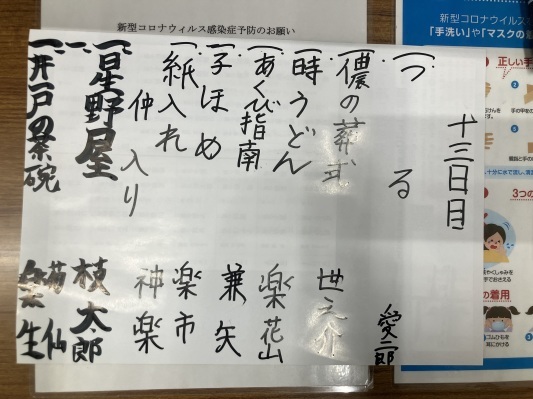 新型コロナウィルス感染症予防のお願い
新型コロナウイルス
「手洗い」や「マスクの着
正しい手
3つの
の着用
十三日目
一、つる 愛二郎
一、儂の葬式 世之介
一、時うどん 楽花山
一、あくび指南 兼矢
一、子ほめ 楽市
一、紙入れ 神楽
仲入り
一、星野屋 枝太郎
一、 菊仙
一、井戸の茶碗 楽生